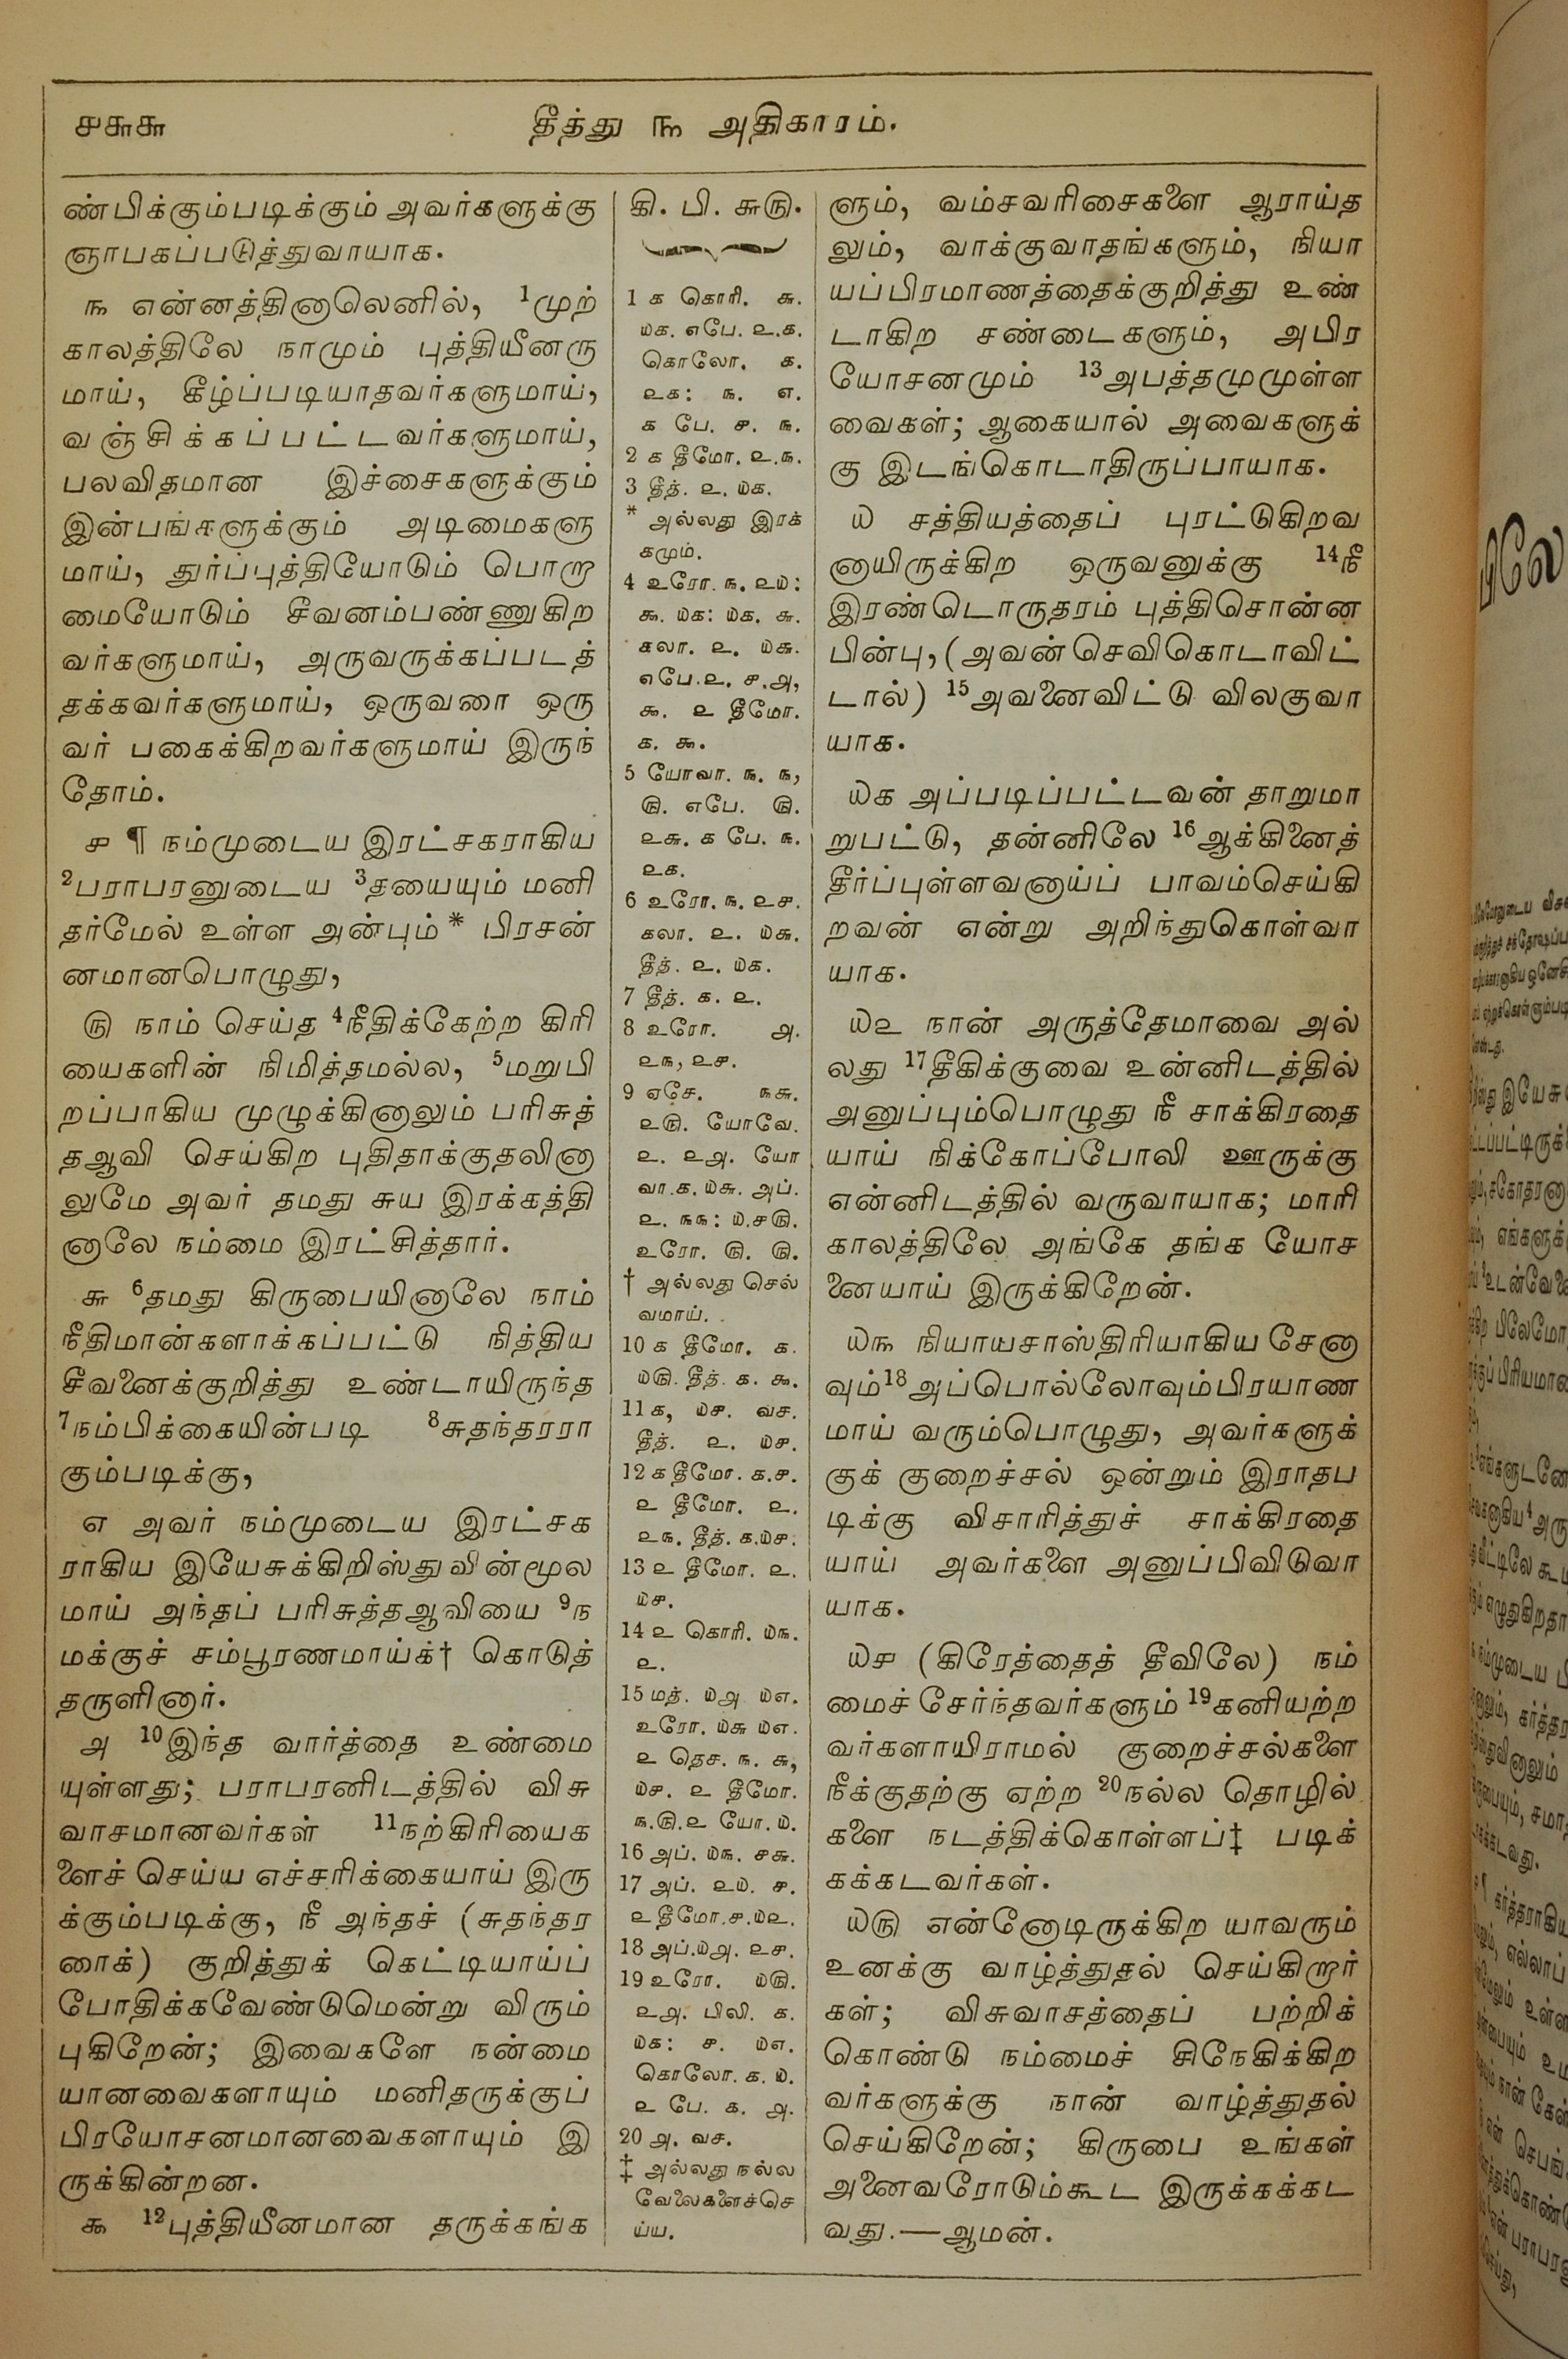 ௪௬௬
தீத்து ௩ அதிகாரம்.
ண்பிக்கும்படிக்கும் அவர்களுக்கு
ஞாபகப்படுத்துவாயாக.
௩ என்னத்தினாலெனில், 1முற்
காலத்திலே நாமும் புத்தியீனரு
மாய், கீழ்ப்படியாதவர்களுமாய்,
வஞ்சிக்கப்பட்டவர்களுமாய்,
பலவிதமான இச்சைகளுக்கும்
இன்பங்களுக்கும் அடிமைகளு
மாய், துர்ப்புத்தியோடும் பொறா
மையோடும் சீவனம்பண்ணுகிற
வர்களுமாய், அருவருக்கப்படத்
தக்கவர்களுமாய், ஒருவரை ஒரு
வர் பகைக்கிறவர்களுமாய் இருந்
தோம்.
௪ ¶ நம்முடைய இரட்சகராகிய
2பராபரனுடைய 3தயையும் மனி
தர்மேல் உள்ள அன்பும்* பிரசன்
னமானபொழுது,
௫ நாம் செய்த 4நீதிக்கேற்ற கிரி
யைகளின் நிமித்தமல்ல, 5மறுபி
றப்பாகிய முழுக்கினாலும் பரிசுத்
தஆவி செய்கிற புதிதாக்குதலினா
லுமே அவர் தமது சுய இரக்கத்தி
னாலே நம்மை இரட்சித்தார்.
௬ 6தமது கிருபையினாலே நாம்
நீதிமான்களாக்கப்பட்டு நித்திய
சீவனைக்குறித்து உண்டாயிருந்த
7நம்பிக்கையின்படி 8சுதந்தரரா
கும்படிக்கு,
௭ அவர் நம்முடைய இரட்சக
ராகிய இயேசுக்கிறிஸ்துவின்மூல
மாய் அந்தப் பரிசுத்தஆவியை 9ந
மக்குச் சம்பூரணமாய்க்† கொடுத்
தருளினார்.
௮ 10இந்த வார்த்தை உண்மை
யுள்ளது; பராபரனிடத்தில் விசு
வாசமானவர்கள் 11நற்கிரியைக
ளைச் செய்ய எச்சரிக்கையாய் இரு
க்கும்படிக்கு, நீ அந்தச் (சுதந்தர
ரைக்) குறித்துக் கெட்டியாய்ப்
போதிக்கவேண்டுமென்று விரும்
புகிறேன்; இவைகளே நன்மை
யானவைகளாயும் மனிதருக்குப்
பிரயோசனமானவைகளாயும் இ
ருக்கின்றன.
௯ 12புத்தியீனமான தருக்கங்க
கி. பி. ௬௫.
1 ௧ கொரி. ௬.
௰௧. எபே. ௨.௧.
கொலோ. ௧.
௨௧: ௩. ௭.
௧ பே. ௪. ௩.
2 ௧ தீமோ. ௨.௩.
3 தீத். ௨. ௰௧.
* அல்லது இரக்
கமும்.
4 உரோ. ௩. ௨௰:
௯. ௰௧: ௰௧. ௬.
கலா. ௨. ௰௬.
எபே.௨. ௪.௮,
௯. ௨ தீமோ.
௧. ௯.
5 யோவா. ௩. ௩,
௫. எபே. ௫.
௨௬. ௧ பே. ௩.
௨௧.
6 உரோ. ௩. ௨௪.
கலா. ௨. ௰௬.
தீத். ௨. ௰௧.
7 தீத். ௧. ௨.
8 உரோ. ௮.
௨௩, ௨௪.
9 ஏசே. ௩௬.
௨௫. யோவே.
௨. ௨௮. யோ
வா.௧.௰௬. அப்.
௨. ௩௩: ௰.௪௫.
உரோ. ௫. ௫.
† அல்லது செல்
வமாய்.
10 ௧ தீமோ. ௧.
௰௫. தீத். ௧. ௯.
11 ௧, ௰௪. வச.
தீத். ௨. ௰௪.
12 ௧ தீமோ. ௧.௪.
௨ தீமோ. ௨.
௨௩. தீத். ௧.௰௪.
13 ௨ தீமோ. ௨.
௰௪.
14 ௨ கொரி. ௰௩.
௨.
15 மத். ௰௮ ௰௭.
உரோ. ௰௬ ௰௭.
௨ தெச. ௩. ௬,
௰௪. ௨ தீமோ.
௩.௫.௨ யோ.௰.
16 அப். ௰௩. ௪௬.
17 அப். ௨௰. ௪.
௨ தீமோ.௪.௰௨.
18 அப்.௰௮. ௨௪.
19 உரோ. ௰௫.
௨௮. பிலி. ௧.
௰௧: ௪. ௰௭.
கொலோ. ௧. ௰.
௨ பே. ௧. ௮.
20 ௮. வச.
‡ அல்லது நல்ல
வேலைகளைச்செ
ய்ய.
ளும், வம்சவரிசைகளை ஆராய்த
லும், வாக்குவாதங்களும், நியா
யப்பிரமாணத்தைக்குறித்து உண்
டாகிற சண்டைகளும், அபிர
யோசனமும் 13அபத்தமுமுள்ள
வைகள்; ஆகையால் அவைகளுக்
கு இடங்கொடாதிருப்பாயாக.
௰ சத்தியத்தைப் புரட்டுகிறவ
னாயிருக்கிற ஒருவனுக்கு 14நீ
இரண்டொருதரம் புத்திசொன்ன
பின்பு, (அவன்செவிகொடாவிட்
டால்) 15அவனைவிட்டு விலகுவா
யாக.
௰௧ அப்படிப்பட்டவன் தாறுமா
றுபட்டு, தன்னிலே 16ஆக்கினைத்
தீர்ப்புள்ளவனாய்ப் பாவம்செய்கி
றவன் என்று அறிந்துகொள்வா
யாக.
௰௨ நான் அருத்தேமாவை அல்
லது 17தீகிக்குவை உன்னிடத்தில்
அனுப்பும்பொழுது நீ சாக்கிரதை
யாய் நிக்கோப்போலி ஊருக்கு
என்னிடத்தில் வருவாயாக; மாரி
காலத்திலே அங்கே தங்க யோச
னையாய் இருக்கிறேன்.
௰௩ நியாயசாஸ்திரியாகிய சேனா
வும்18அப்பொல்லோவும்பிரயாண
மாய் வரும்பொழுது, அவர்களுக்
குக் குறைச்சல் ஒன்றும் இராதப
டிக்கு விசாரித்துச் சாக்கிரதை
யாய் அவர்களை அனுப்பிவிடுவா
யாக.
௰௪ (கிரேத்தைத் தீவிலே) நம்
மைச் சேர்ந்தவர்களும் 19கனியற்ற
வர்களாயிராமல் குறைச்சல்களை
நீக்குதற்கு ஏற்ற 20நல்ல தொழில்
களை நடத்திக்கொள்ளப்‡ படிக்
கக்கடவர்கள்.
௰௫ என்னோடிருக்கிற யாவரும்
உனக்கு வாழ்த்துதல் செய்கிறார்
கள்; விசுவாசத்தைப் பற்றிக்
கொண்டு நம்மைச் சிநேகிக்கிற
வர்களுக்கு நான் வாழ்த்துதல்
செய்கிறேன்; கிருபை உங்கள்
அனைவரோடும்கூட இருக்கக்கட
வது.—ஆமன்.